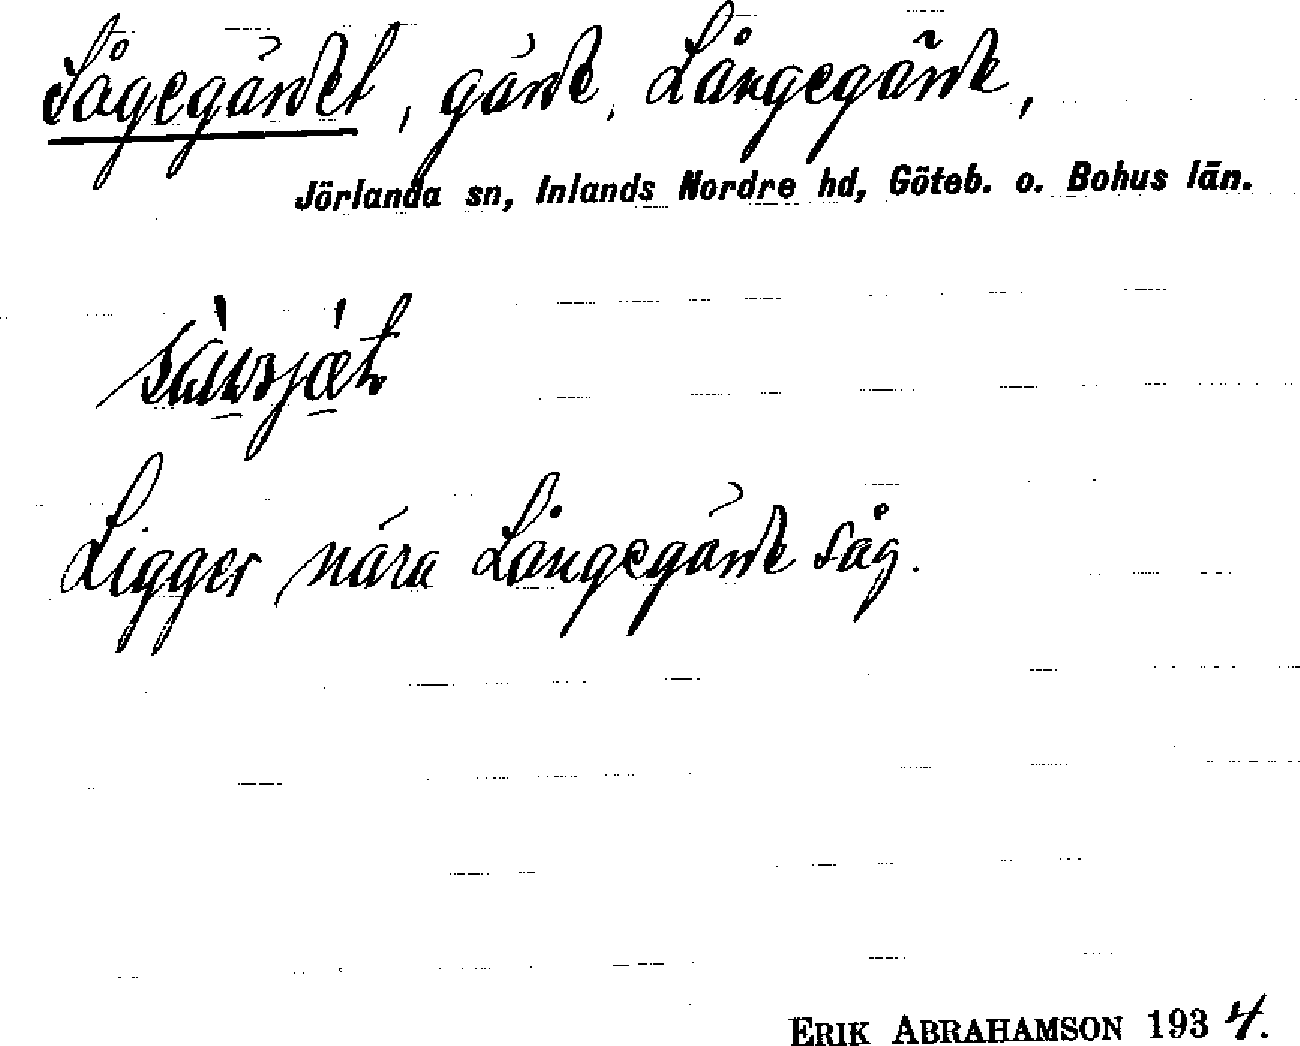 Sågegärdet, gärde, Långegärde,
Jörlanda sn, Inlands Nordre hd, Göteb. o. Bohus län.
Ligger nära Långegärde såg.
ERIK ABRAHAMSON 1934.